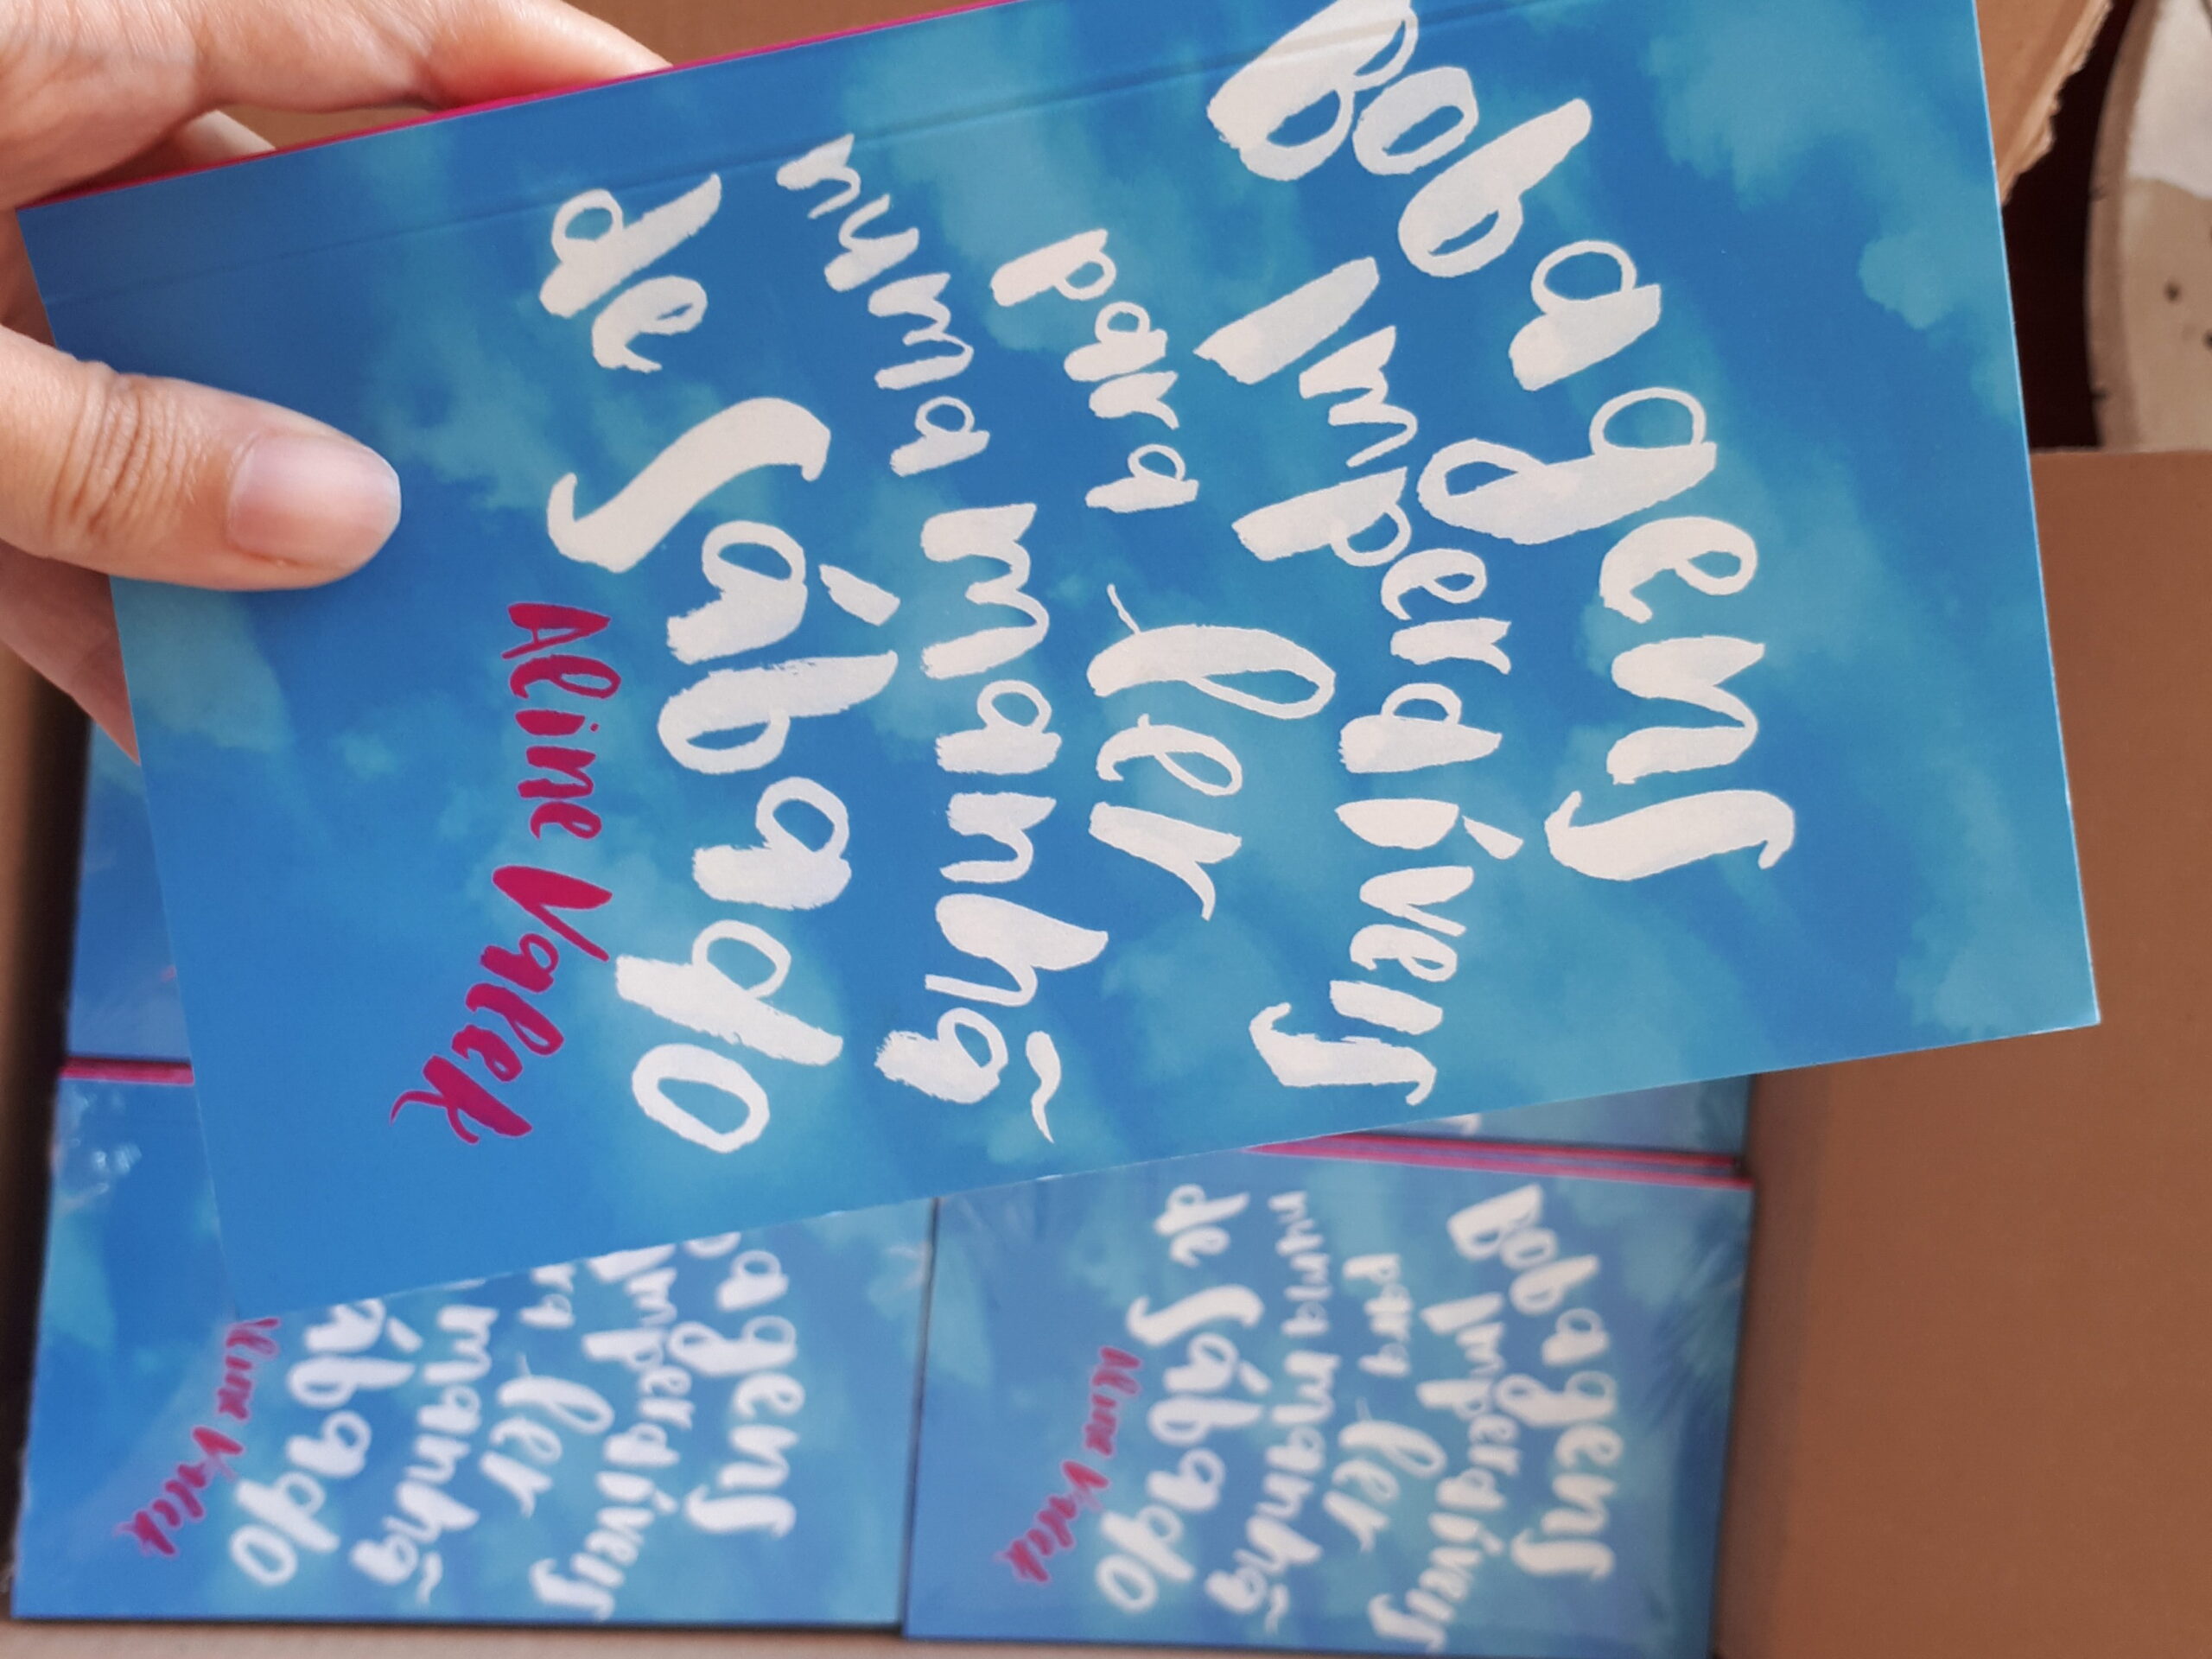 Bobagens
Imperdíveis
para ler
numa manhã
de Sábado
Aline Valek
Bobagens
Imperdíveis
para ler
numa manhã
de Sábado
Aline Valek
bagens
Imperdíveis
ra ler
manhã
ábado
Aline Valek